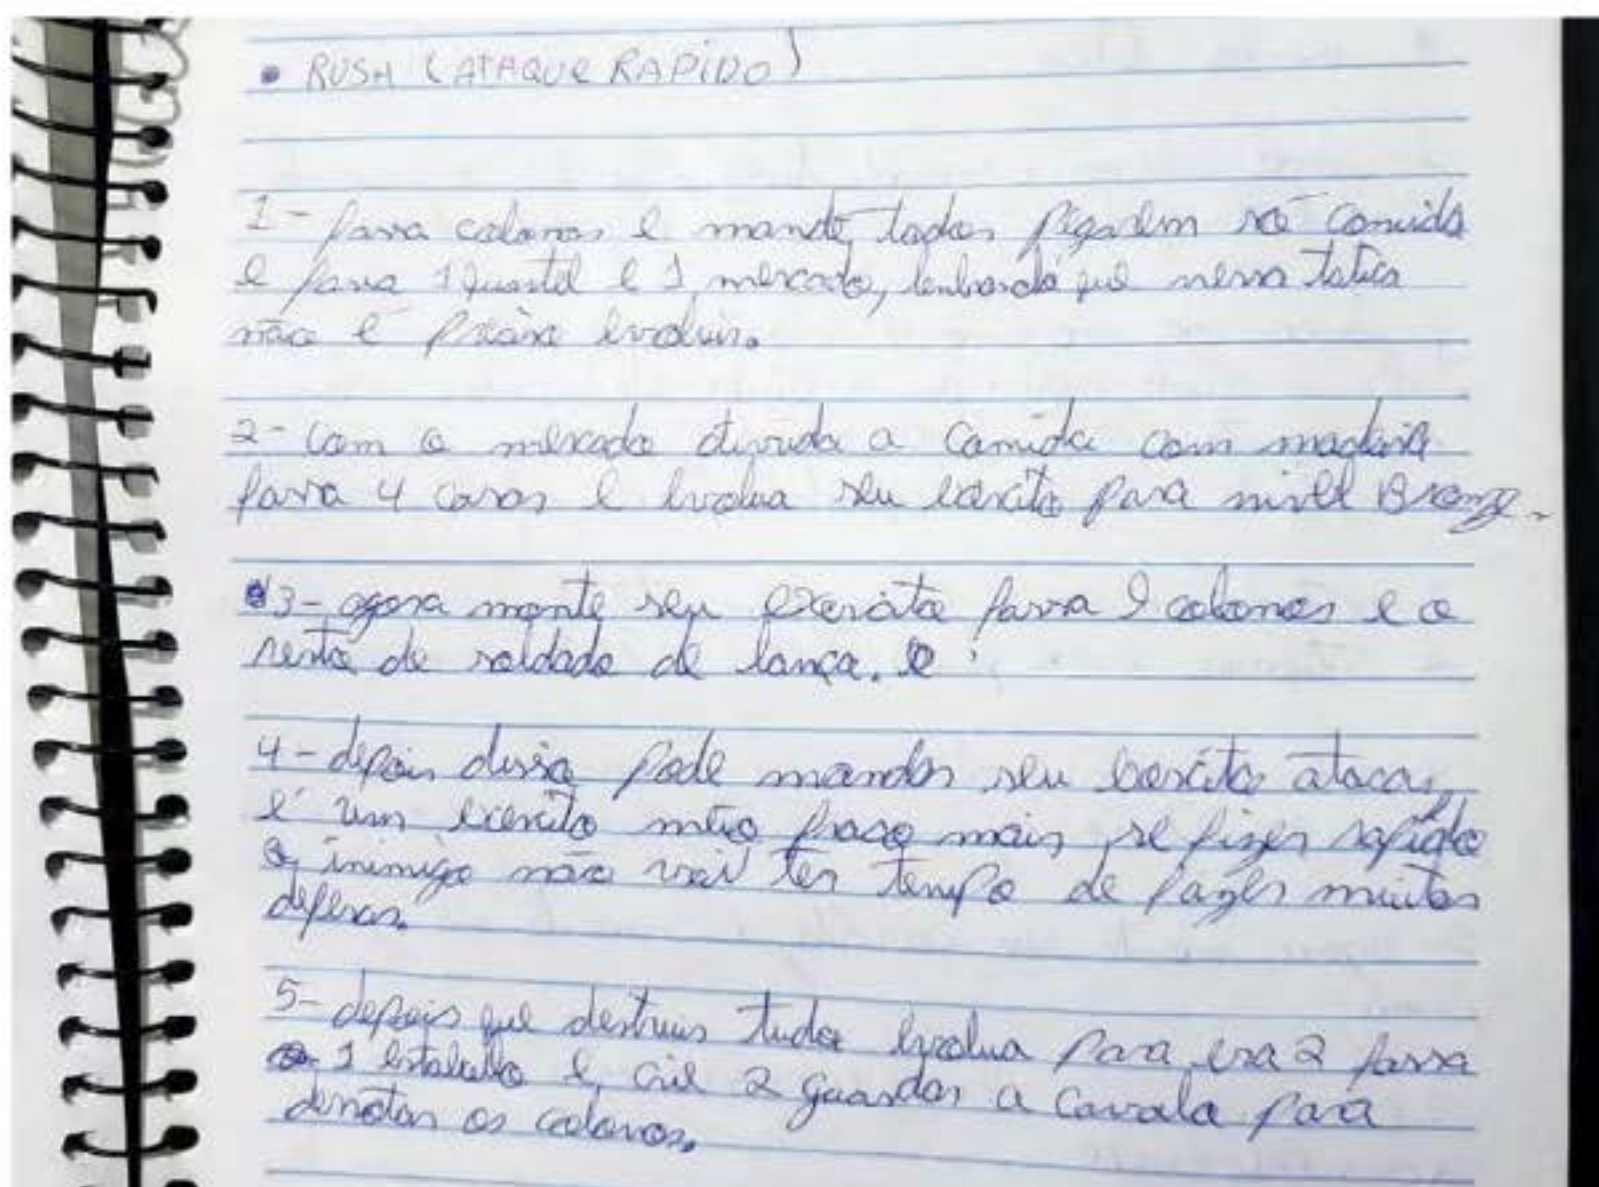 • RUSH (ATAQUE RAPIDO)
1- fava colonos e mande todos pegarem só comida
e fava 1 quartel e 1 mercado, lembrando que nessa tatica
não é preciso evoluir.
2- com o mercado divida a comida com madeira
fassa 4 casas e evolua seu exercito para nivel Bronze.
3- agora monte seu exercito fassa 9 colonos e o
resto de soldado de lança.
4- depois disso pode mandar seu exercito atacar,
é um exercito fraco mais se fizer rapido
o inimigo não vai ter tempo de fazer muitas
defesas.
5- depois que destruir tudo evolua para era 2 fassa
1 estabullo e crie 2 guardas a cavalo para
derrotar os colonos.